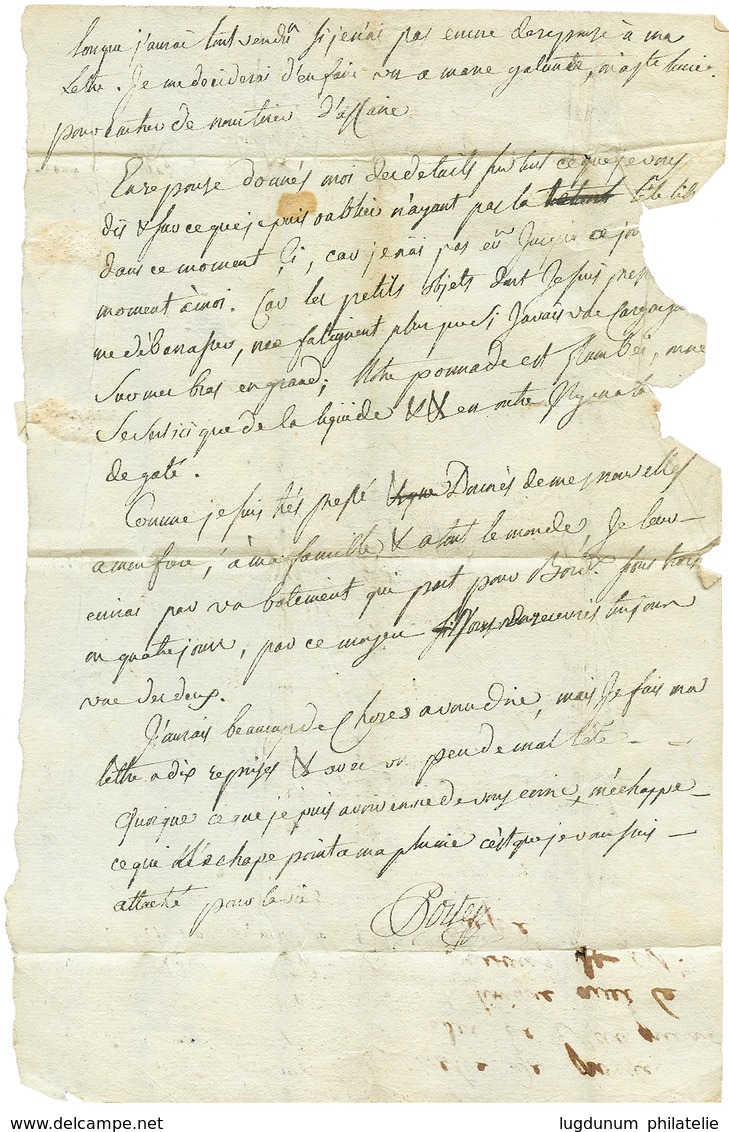 lorsque j'aurai tout vendu si je n'ai pas encore de reponse à ma
Lettre. Je me deciderai d'en faire
pour tacher de nous tirer d'affaire
En reponse donnés moi des details sur tous ce que je vous
dis & sur ce que je puis oublier n'ayant pas la tête
dans ce moment ici, car je n'ai pas eû jusqu'a ce jou
moment à moi. Car les petits objets dont Je suis
me débarasser, me fatiguent plus que si J'avais une Cargaison
sur mes bras en grand; Notre pommade est flambée, on ne
se sert ici que de la liquide & en outre
de gaté.
Comme je suis très pressé Donnés de mes nouvelles
a mon frere, à ma famille & a tout le monde, Je leur
ecrirai par un batiment qui part pour Bord.x sous trois
ou quatre jours, par ce moyen vous en recevres toujours
une des deux.
J'aurais beaucoup de Choses a vous dire, mais Je fais ma
lettre a dix reprises & avec un peu de mal
Quoique ce que je puis avoir envie de vous ecrire, m'échappe
ce qui n'échape point a ma plume c'est que je vous suis
attaché pour la vie
delcampe.net
lugdunum philatelie